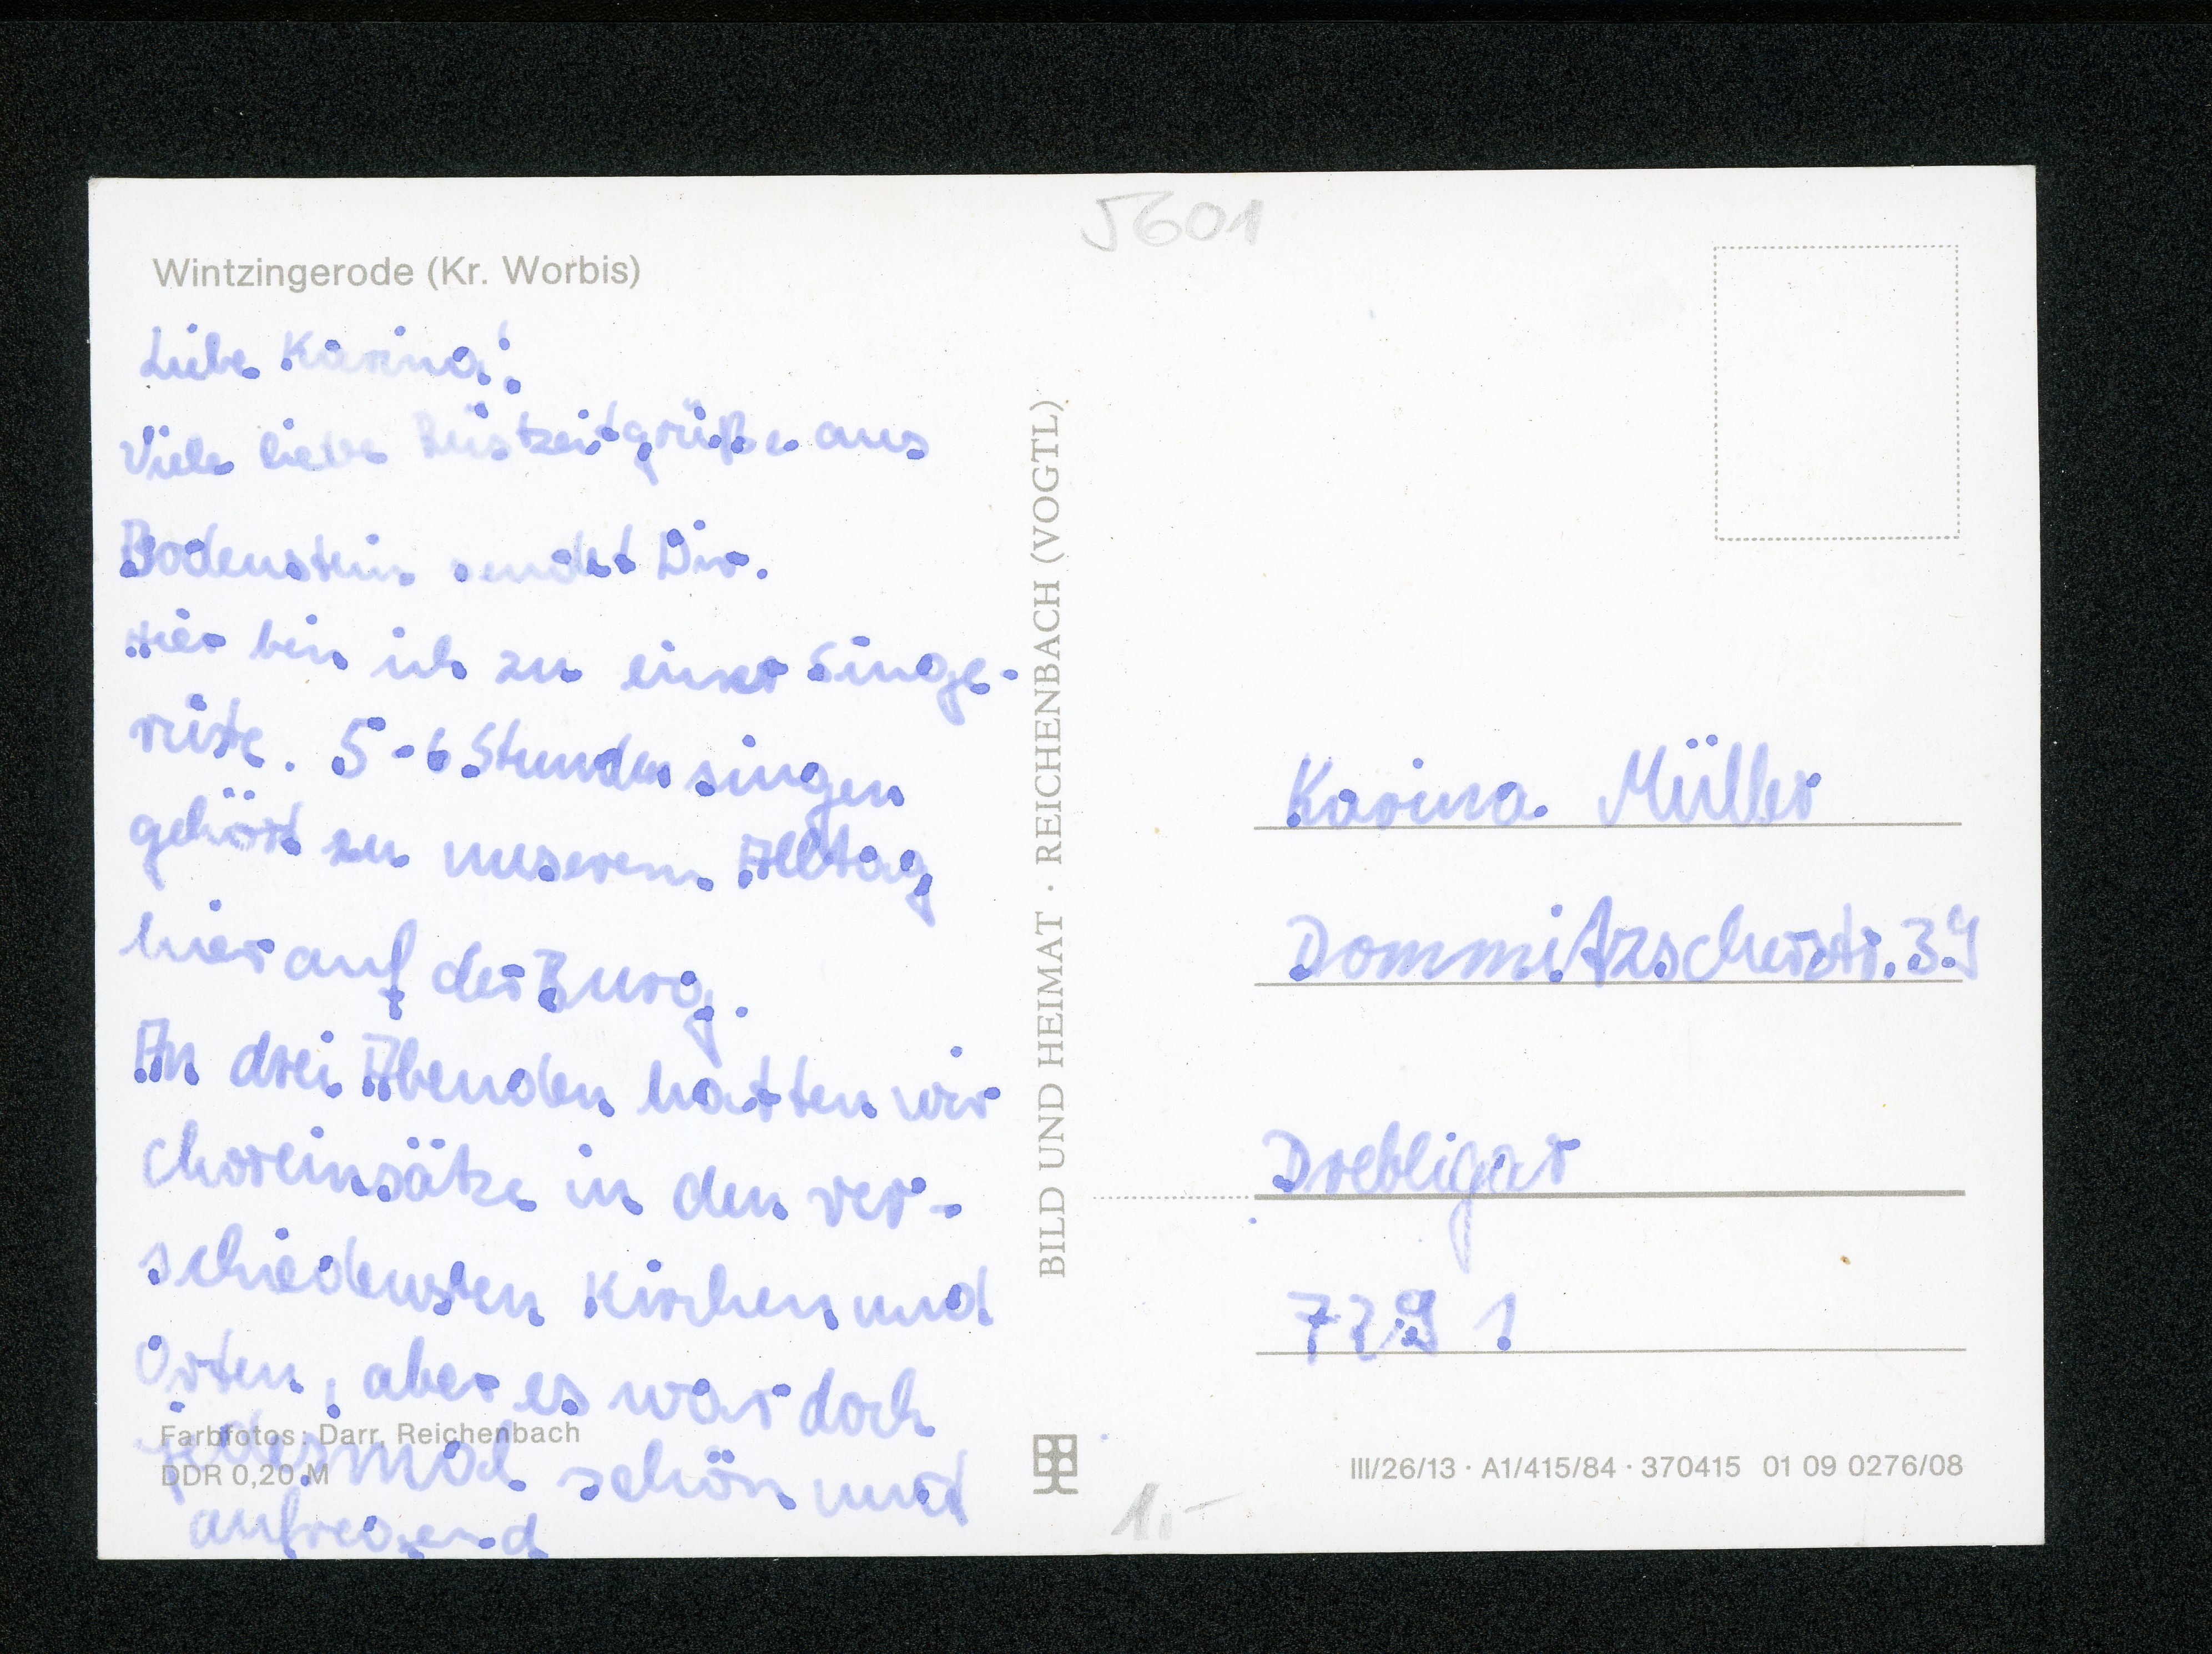 5601
Wintzingerode (Kr. Worbis)
Liebe Karina!
Viele liebe Rüstzeitgrüße aus
Bodenstein sendet Dir.
Hier bin ich zu einer Singe-
rüste. 5-6 Stunden singen
gehört zu unserem Alltag
hier auf der Burg.
An drei Abenden hatten wir
Choreinsätze in den ver-
schiedensten Kirchen und
Orten, aber es war doch
jedesmal schön und
aufregend
Farbfotos: Darr, Reichenbach
DDR 0,20 M
BILD UND HEIMAT · REICHENBACH (VOGTL)
Karina Müller
Dommitzscherstr. 39
Drebligar
7291
III/26/13 · A1/415/84 · 370415 01 09 0276/08
1,-